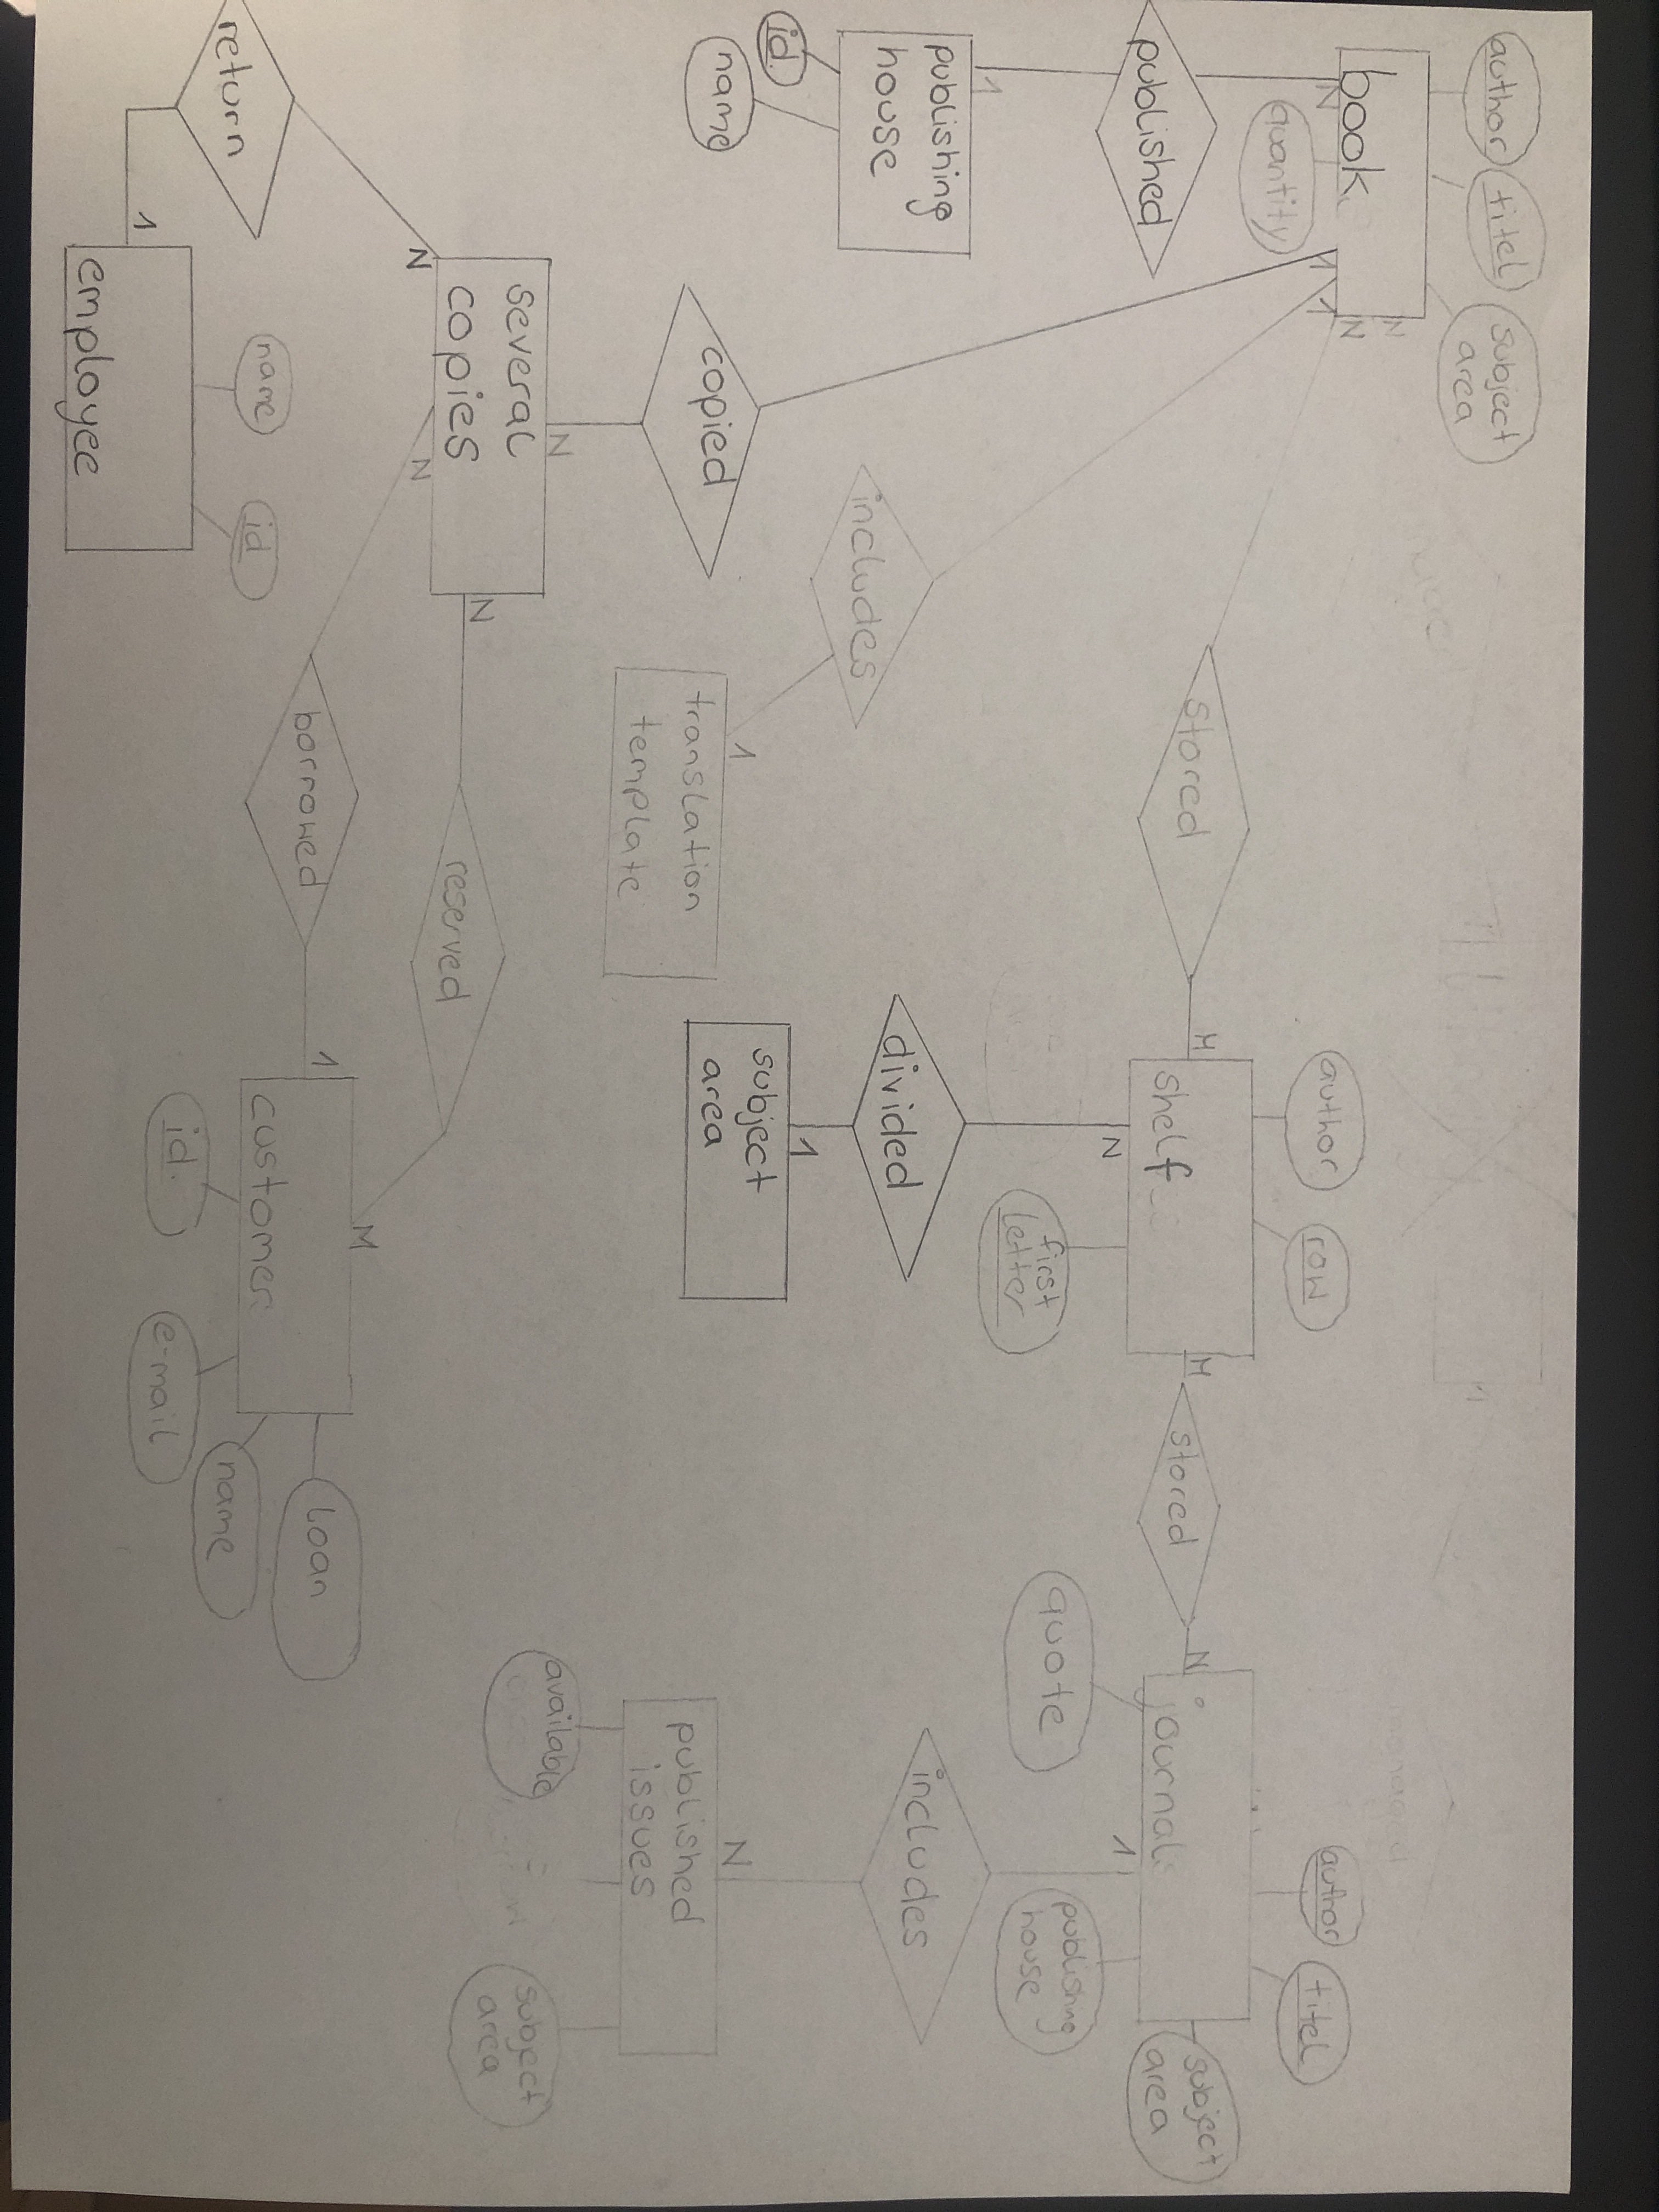 author
titel
subject
area
book
N
N
N
1
1
quantity
published
1
publishing
house
id
name
copied
N
several
copies
N
N
N
return
1
employee
name
id
includes
1
translation
template
stored
M
shelf
author
row
first
letter
N
divided
1
subject
area
M
stored
N
journal
author
titel
subject
area
publishing
house
quote
1
includes
N
published
issues
available
subject
area
borrowed
1
reserved
M
customer
id
e-mail
name
loan